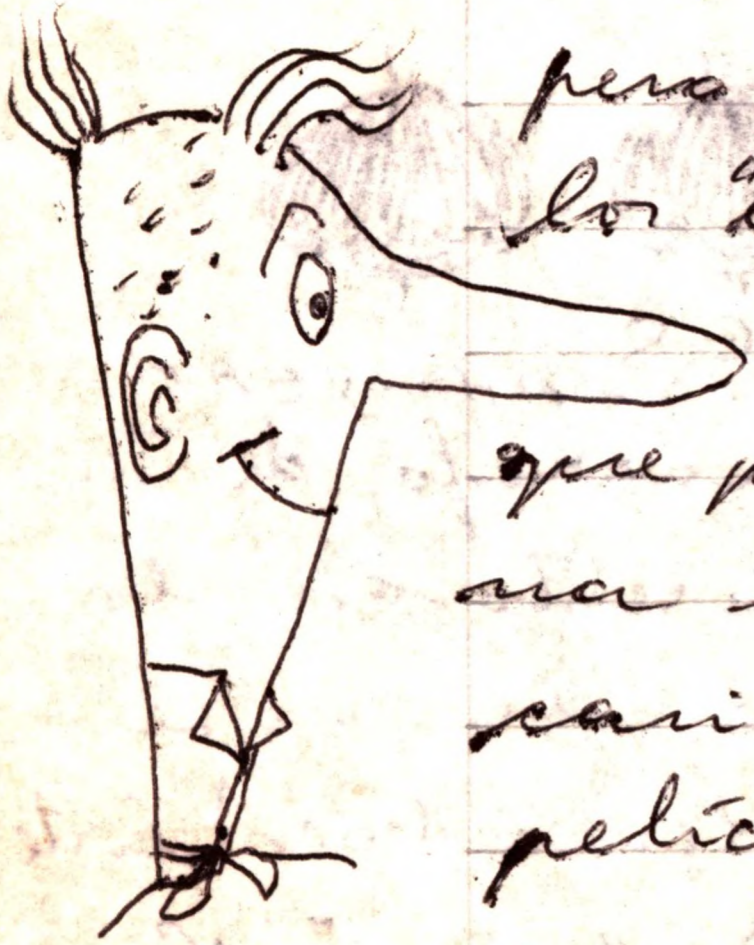 pera
los
que p
na
cari
pelíc